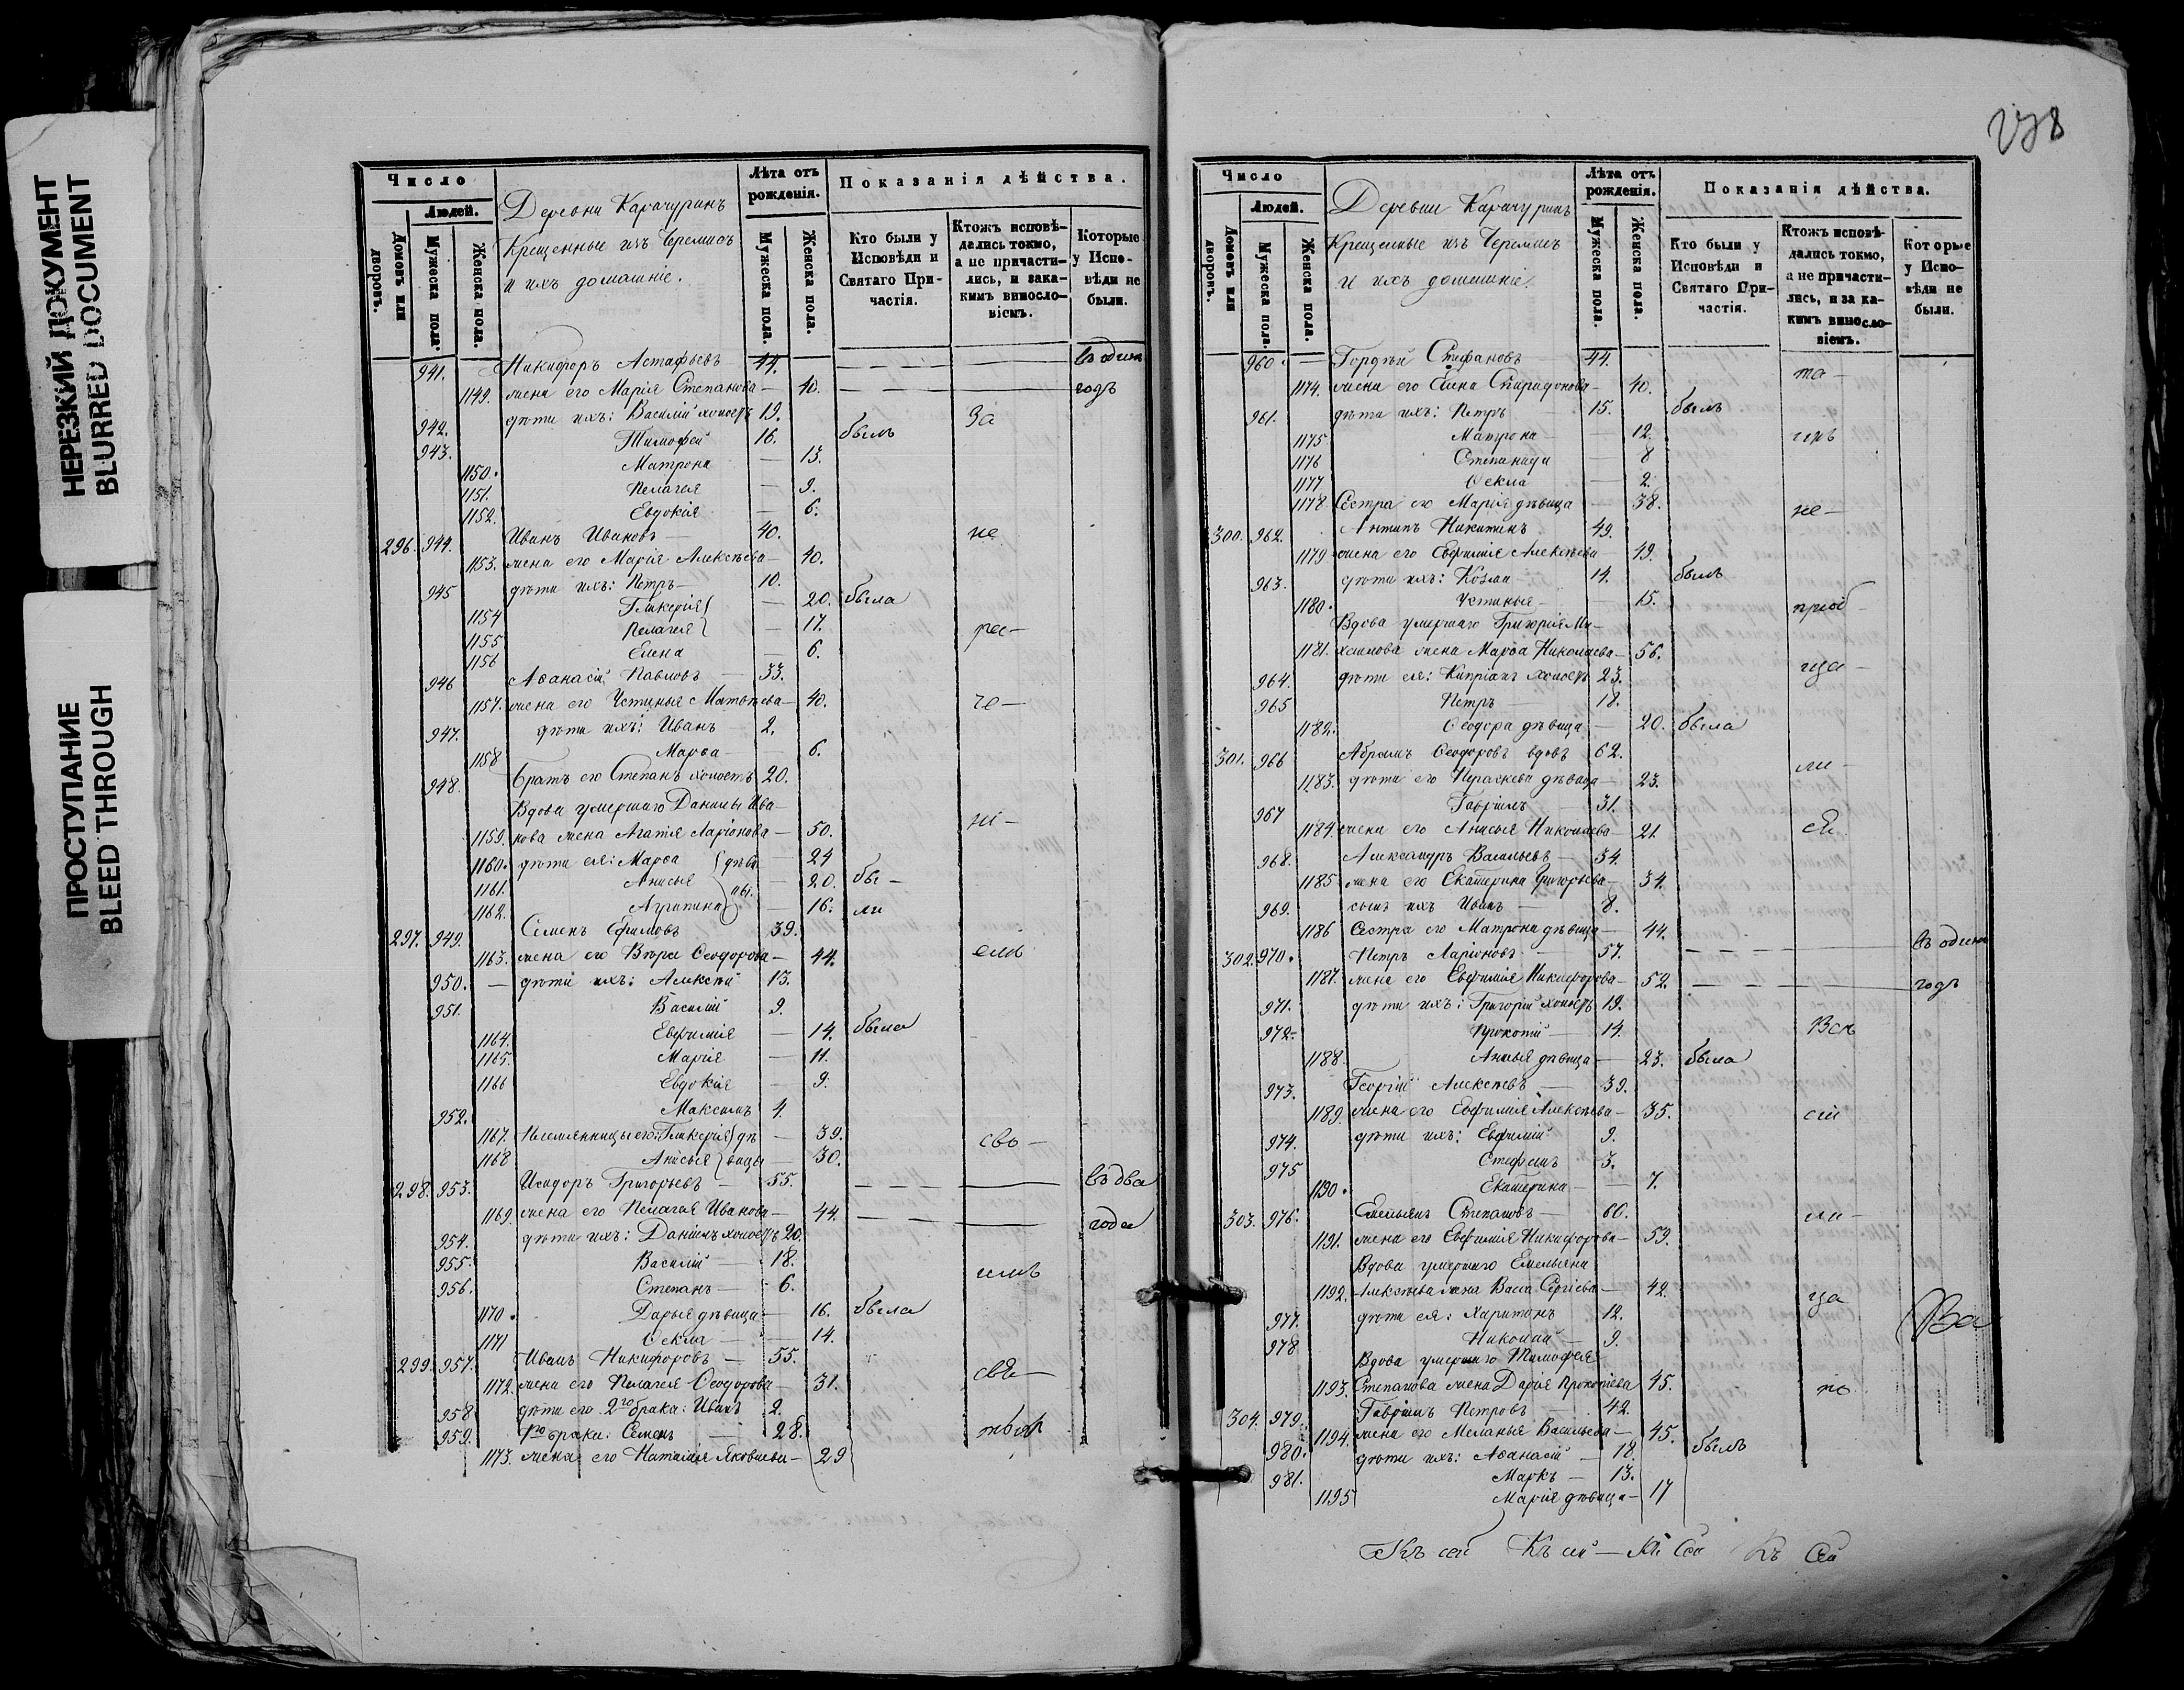 НЕРЕЗКИЙ ДОКУМЕНТ
BLURRED DOCUMENT
ПРОСТУПАНИЕ
BLEED THROUGH
Число
Людей.
Домовъ или дворовъ.
Мужеска пола.
Женска пола.
Деревни Карачуринъ
Крещенные изъ Черемисъ
и ихъ домашніе.
Лѣта отъ рожденія.
Мужеска пола.
Женска пола.
Показанія дѣйства.
Кто были у Исповѣди и Святаго Причастія.
Ктожъ исповѣдались токмо, а не причастились, и за какимъ винословіемъ.
Которые у Исповѣди не были.
941. Никифоръ Астафьевъ 44. въ одинъ
1149. жена его Марія Степанова — 40. годъ
942. дѣти ихъ: Василій холостъ 19. За
943. Тимофей 16. былъ
1150. Матрона — 13.
1151. Пелагея — 9.
1152. Евдокія — 6.
296. 944. Иванъ Ивановъ — 40. не
1153. жена его Марія Алексѣева — 40.
945 дѣти ихъ: Петръ — 10.
1154 Гликерія — 20. была
1155 Пелагея — 17. рас-
1156 Елена — 6.
946 Аѳанасій Павловъ — 33.
1157. жена его Устинья Матвѣева — 40.
947. дѣти ихъ: Иванъ 2.
1158 Марѳа — 6.
948. братъ его Степанъ холостъ 20.
Вдова умершаго Данилы Ива-
1159. нова жена Агапія Ларіонова — 50. ні-
1160. дѣти ея: Марѳа дѣви 24
1161. Анисья цы. 20. бы-
1162. Агрипина 16. ли
297. 949. Семенъ Ефимовъ 39.
1163. жена его Вѣра Ѳеодорова — 44. емъ
950. — дѣти ихъ: Алексѣй 13.
951. Василій 9.
1164. Евфимія — 14. была
1165. Марія — 11.
1166 Евдокія — 9.
952. Максимъ 4.
1167. Племянницы его: Гликерія дѣ — 39. сво-
1168 Анисья вицы — 30.
298. 953. Исидоръ Григорьевъ — 55. въ два
1169. жена его Пелагея Иванова — 44. года
954. дѣти ихъ: Даніилъ холостъ 20.
955. Василій — 18.
956. Степанъ — 6.
1170. Дарья дѣвица — 16. была
1171 Ѳекла — 14.
299. 957. Иванъ Никифоровъ — 55.
1172. жена его Пелагея Ѳеодорова — 31.
958 дѣти его 2го брака: Иванъ 2.
959. 1го брака: Семенъ — 28.
1173. жена его Наталія Яковлева — 29
278
Число
Людей.
Домовъ или дворовъ.
Мужеска пола.
Женска пола.
Деревни Карачуринъ
Крещеные изъ Черемисъ
и ихъ домашніе.
Лѣта отъ рожденія.
Мужеска пола.
Женска пола.
Показанія дѣйства.
Кто были у Исповѣди и Святаго Причастія.
Ктожъ исповѣдались токмо, а не причастились, и за какимъ винословіемъ.
Которые у Исповѣди не были.
960. — Гордѣй Стефановъ 44. та-
1174. жена его Елена Спиридонова — 40.
961. дѣти ихъ: Петръ — 15. былъ
1175 Матрона — 12.
1176 Степанида — 8
1177 Ѳекла — 2.
1178. Сестра его Марія дѣвица — 38. не-
300. 962. Антипъ Никитинъ 49.
1179 жена его Евфимія Алексѣева — 49.
963. дѣти ихъ: Козма — 14. былъ
1180. Устинья — 15. пріоб-
Вдова умершаго Григорія Ми-
1181. хайлова жена Марѳа Николаева — 56. ща-
964. дѣти ея: Кипріанъ холостъ 23.
965 Петръ — 18.
1182. Ѳеодора дѣвица — 20. была
301. 966 Абрамъ Ѳеодоровъ вдовъ 62. ли-
1183. дѣти его Параскева дѣвица — 23.
967 Гавріилъ — 31.
1184. жена его Анисья Николаева — 21.
968. Александръ Васильевъ — 34.
1185 жена его Екатерина Григорьева — 34.
969. сынъ ихъ Иванъ — 8.
1186 Сестра его Матрона дѣвица — 44.
302. 970. Петръ Ларіоновъ — 57. въ одинъ
1187. жена его Евфимія Никифорова — 52. годъ
971. дѣти ихъ: Григорій холостъ 19.
972. Прокопій — 14. Вск
1188. Анисья дѣвица — 23. была
973. Георгій Алексѣевъ — 39.
1189. жена его Евфимія Алексѣева — 35.
974. дѣти ихъ: Евфимій 9.
975 Стефанъ 3.
1190. Екатерина — 7.
303. 976. Емельянъ Степановъ — 60. ли-
1191. жена его Евфимія Никифорова — 59.
Вдова умершаго Емельяна
1192. Алексѣева жена Васса Сергѣева — 42. ца
977. дѣти ея: Харитонъ 12.
978 Николай — 9.
Вдова умершаго Тимофея
1193. Степанова жена Дарія Прокопіева 45. по
304. 979. Гавріилъ Петровъ — 42.
1194. жена его Меланья Васильева — 45.
980. дѣти ихъ: Аѳанасій — 18. былъ
981. Маркъ — 13.
1195 Марія дѣвица — 17
Къ сей Къ сей